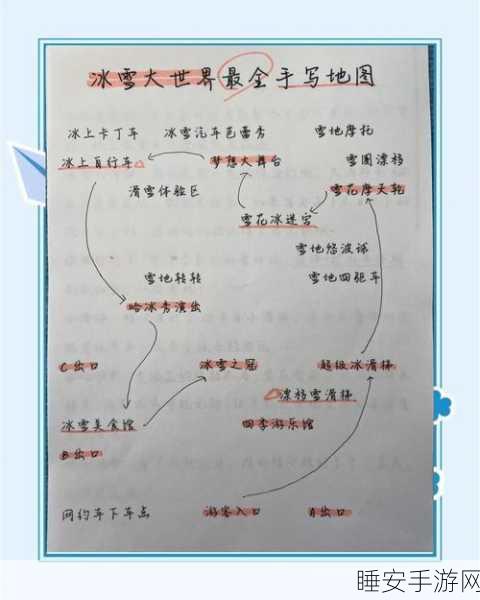 冰雪大世界最全手写地图
冰上卡丁车 冰雪汽车芭蕾秀 雪地摩托
冰上自行车 梦想大舞台 雪圈漂移
滑雪体验区 雪花摩天轮
雪花冰迷宫
雪地悠波球
雪地转转 雪地四驱车
哈冰秀演出
C出口 冰雪之冠 超级冰滑梯
漂移雪滑梯
冰雪美食馆 四季游乐馆
B出口
网约车下车点 游客入口 A出口
睡安手游网